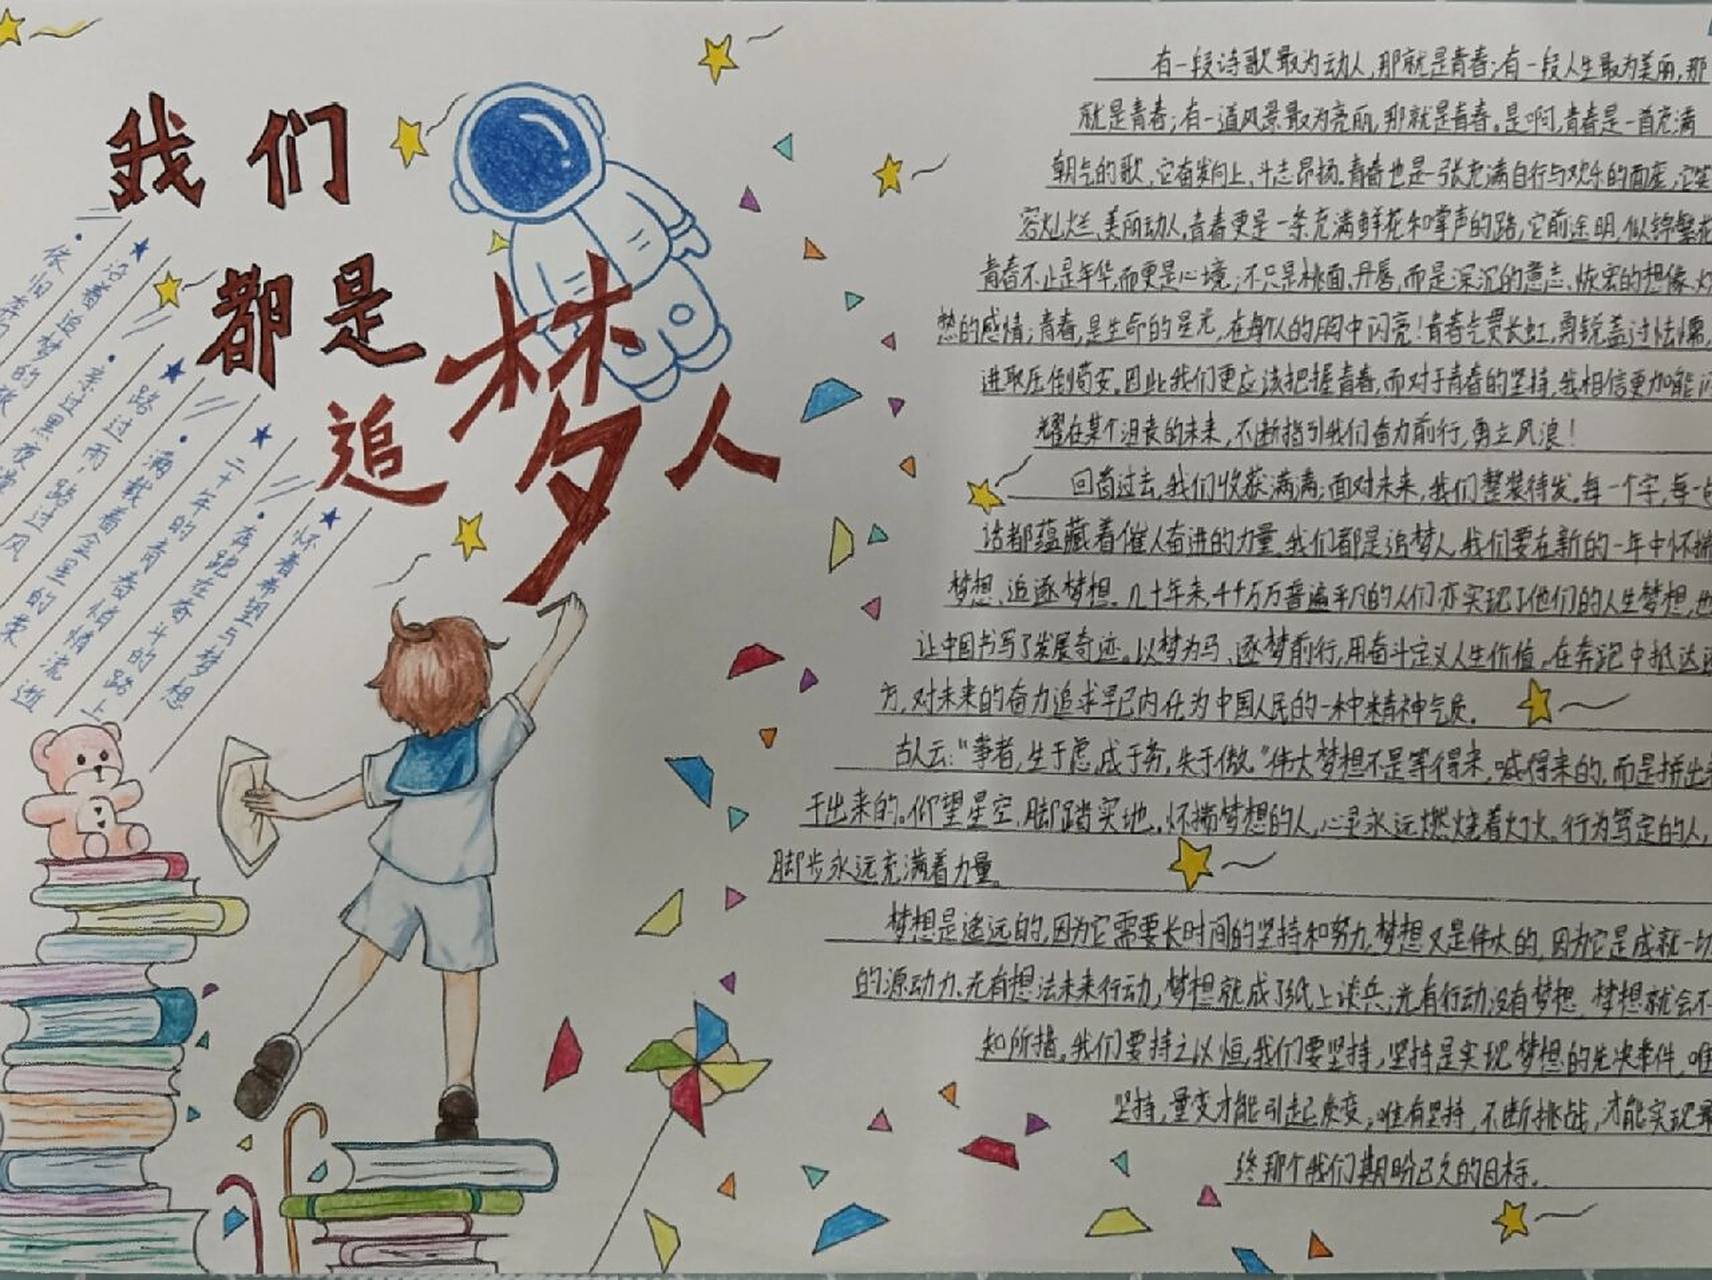 我们
都是
追梦人
怀着希望与梦想
奔跑在奋斗的路上
二十年的青春悄悄流逝
满载着金星的荣
路过雨，路过风
亲过黑夜
沿着追梦的
依旧
有一段诗歌最为动人，那就是青春；有一段人生最为美丽，那
就是青春；有一道风景最为亮丽，那就是青春。是啊，青春是一首充满
朝气的歌，它奋发向上、斗志昂扬。青春也是一张充满自行与欢乐的面座，它笑
容灿烂、美丽动人，青春更是一条充满鲜花和掌声的路，它前途明，似锦繁花
青春不止是年华，而更是心境；不只是桃面、丹唇，而是深沉的意志、恢宏的想像、
热的感情；青春，是生命的星光，在每个人的胸中闪亮！青春气贯长虹，勇锐盖过怯懦，
进取压倒苟安。因此我们更应该把握青春，而对于青春的坚持，我相信更加能闪
耀在某个沮丧的未来，不断指引我们奋力前行，勇立风浪！
回首过去，我们收获满满；面对未来，我们整装待发。每一个字，每一句
话都蕴藏着催人奋进的力量。我们都是追梦人，我们要在新的一年中怀揣
梦想、追逐梦想。几十年来，千千万万普遍平凡的人们亦实现了他们的人生梦想，也
让中国书写了发展奇迹。以梦为马、逐梦前行，用奋斗定义人生价值。在奔跑中抵达远
方，对未来的奋力追求早已内化为中国人民的一种精神气质。
古人云：“事者，生于虑，成于务，失于傲。”伟大梦想不是等得来，喊得来的，而是拼出来
干出来的。仰望星空，脚踏实地。怀揣梦想的人，心灵永远燃烧着灯火。行为笃定的人，
脚步永远充满着力量。
梦想是遥远的，因为它需要长时间的坚持和努力，梦想又是伟大的，因为它是成就一切
的源动力、光有想法未来行动，梦想就成了纸上谈兵；光有行动没有梦想，梦想就会不
知所措。我们要持之以恒，我们要坚持，坚持是实现梦想的先决条件，唯
坚持，量变才能引起质变；唯有坚持，不断挑战，才能实现最
终那个我们期盼已久的目标。